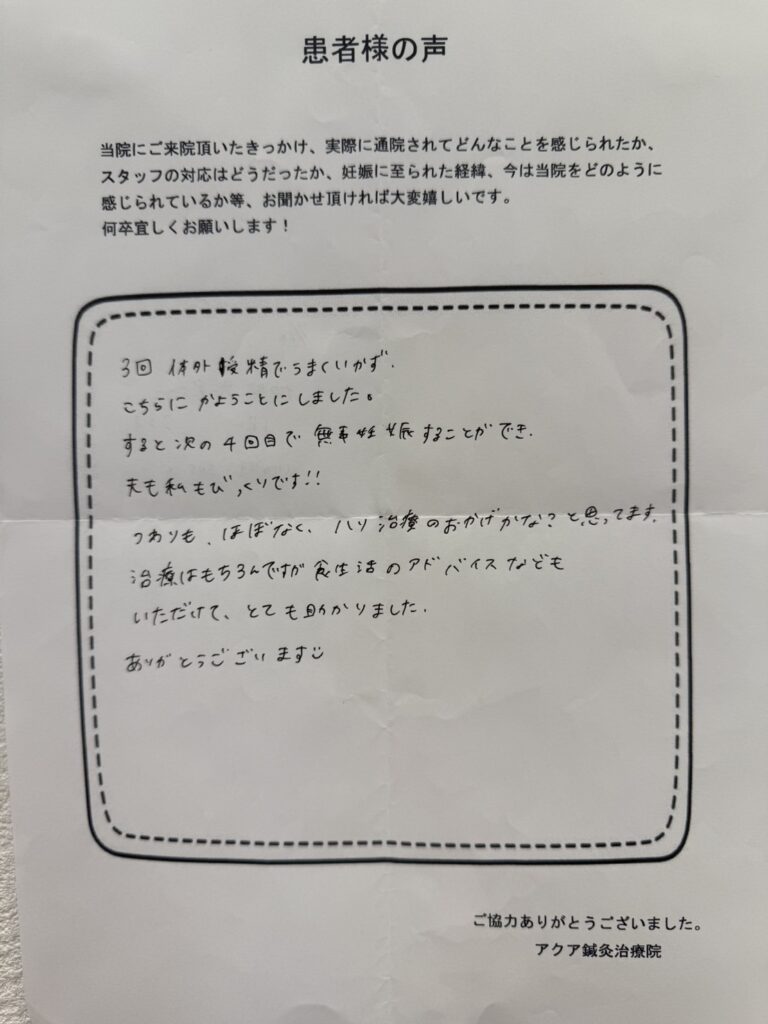 患者様の声
当院にご来院頂いたきっかけ、実際に通院されてどんなことを感じられたか、
スタッフの対応はどうだったか、妊娠に至られた経緯、今は当院をどのように
感じられているか等、お聞かせ頂ければ大変嬉しいです。
何卒宜しくお願いします！
3回 体外受精でうまくいかず、
こちらに かようことにしました。
すると次の4回目で 無事妊娠することができ、
夫も私もびっくりです!!
つわりも、ほぼなく、ハリ治療のおかげかな？と思ってます。
治療はもちろんですが食生活のアドバイスなども
いただけて、とても助かりました。
ありがとうございます
ご協力ありがとうございました。
アクア鍼灸治療院